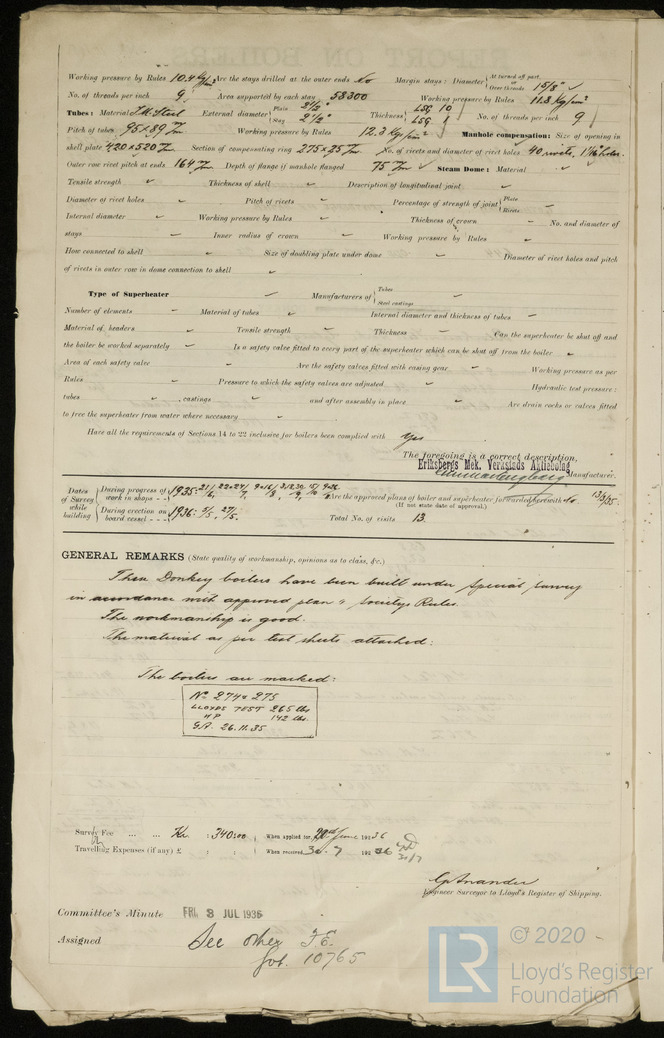 Working pressure by Rules 10.4 Kg/cm² Are the stays drilled at the outer ends No Margin stays: Diameter { At turned off part, or Over threads 1 5/8" ✓
No. of threads per inch 9 Area supported by each stay 58300 Working pressure by Rules 11.3 Kg/cm²
Tubes: Material S.M. Steel External diameter { Plain 2 1/2" Stay 2 1/2" Thickness { LSG 10 LSG No. of threads per inch 9
Pitch of tubes 95 x 89 Working pressure by Rules 12.3 Kg/cm² ✓ Manhole compensation: Size of opening in
shell plate 420 x 520 Section of compensating ring 275 x 25 No. of rivets and diameter of rivet holes 40 rivets, 1 1/16 holes.
Outer row rivet pitch at ends 164 Depth of flange if manhole flanged 75 ✓ Steam Dome: Material
Tensile strength Thickness of shell Description of longitudinal joint
Diameter of rivet holes Pitch of rivets Percentage of strength of joint { Plate Rivets
Internal diameter Working pressure by Rules Thickness of crown No. and diameter of
stays Inner radius of crown Working pressure by Rules
How connected to shell Size of doubling plate under dome Diameter of rivet holes and pitch
of rivets in outer row in dome connection to shell
Type of Superheater Manufacturers of { Tubes Steel castings
Number of elements Material of tubes Internal diameter and thickness of tubes
Material of headers Tensile strength Thickness Can the superheater be shut off and
the boiler be worked separately Is a safety valve fitted to every part of the superheater which can be shut off from the boiler
Area of each safety valve Are the safety valves fitted with easing gear Working pressure as per
Rules Pressure to which the safety valves are adjusted Hydraulic test pressure:
tubes , castings and after assembly in place Are drain cocks or valves fitted
to free the superheater from water where necessary
Have all the requirements of Sections 14 to 22 inclusive for boilers been complied with Yes
The foregoing is a correct description,
Eriksbergs Mek. Verkstads Aktiebolag Manufacturer.
Dates of Survey while building { During progress of work in shops - - } 1935: Are the approved plans of boiler and superheater forwarded herewith No 13/5/35.
(If not state date of approval.)
{ During erection on board vessel - - - } 1936: 5/5, 27/5. Total No. of visits 13.
GENERAL REMARKS (State quality of workmanship, opinions as to class, &c.)
These Donkey boilers have been built under Special Survey
in accordance with approved plan & Societys Rules.
The workmanship is good.
The material as per test sheets attached:
The boilers are marked:
No 274 & 275
LLOYDS TEST 265 lbs
WP 142 lbs.
G.A. 26.11.35
Survey Fee ... ... Kr. : 340:00 When applied for, 1936
Travelling Expenses (if any) £ : : When received, 30.7 1936 31/7
G Anander
Engineer Surveyor to Lloyd's Register of Shipping.
Committee's Minute FRI. 3 JUL 1936
Assigned See other F.E.
Got. 10765
LR © 2020
Lloyd's Register
Foundation